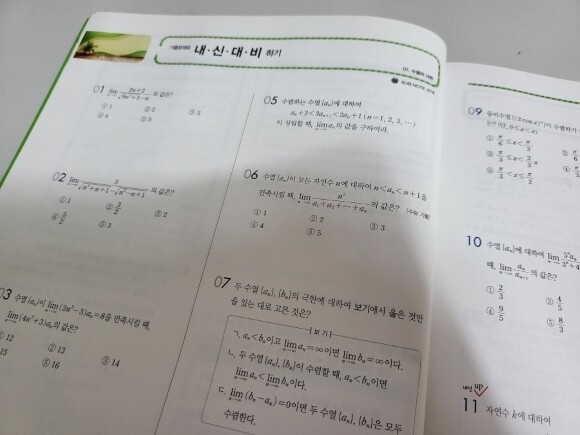 기출문제로 내·신·대·비 하기
01. 수열의 극한
SUB NOTE
01 lim 의 값은?
① 1 ② 2 ③ 3
④ 4 ⑤ 5
02 lim 3/(√(n²+n+1)-√(n²-n+1)) 의 값은?
① 1 ② 3/2 ③ 2
④ 5/2 ⑤ 3
03 수열 {aₙ}이 lim (2n²-3)aₙ=8을 만족시킬 때,
lim (4n²+3)aₙ의 값은?
① 12 ② 13 ③ 14
15 ⑤ 16
05 수렴하는 수열 {aₙ}에 대하여
aₙ+2<3aₙ₊₁<2aₙ+1 (n=1, 2, 3, …)
이 성립할 때, lim aₙ의 값을 구하여라.
06 수열 {aₙ}이 모든 자연수 n에 대하여 n<aₙ<n+1을
만족시킬 때, lim n²/(a₁+a₂+…+aₙ)의 값은? [수능 기출]
① 1 ② 2 ③ 3
④ 4 ⑤ 5
07 두 수열 {aₙ}, {bₙ}의 극한에 대하여 보기에서 옳은 것만
을 있는 대로 고른 것은?
보기
ㄱ. aₙ<bₙ이고 lim aₙ=∞이면 lim bₙ=∞이다.
ㄴ. 두 수열 {aₙ}, {bₙ}이 수렴할 때, aₙ<bₙ이면
lim aₙ<lim bₙ이다.
ㄷ. lim (bₙ-aₙ)=0이면 두 수열 {aₙ}, {bₙ}은 모두
수렴한다.
09 등비수열 {(2cos x)ⁿ}이 수렴하기
은? (단, 0<x<π)
① π/6≤x<π/3
③ π/3≤x≤2/3π
⑤ π/3<x≤π/2
10 수열 {aₙ}에 대하여 lim
때, lim aₙ/aₙ₊₁의 값은?
① 2/3 ② 4/5
④ 9/5 ⑤ 8/3
내신 UP
11 자연수 k에 대하여